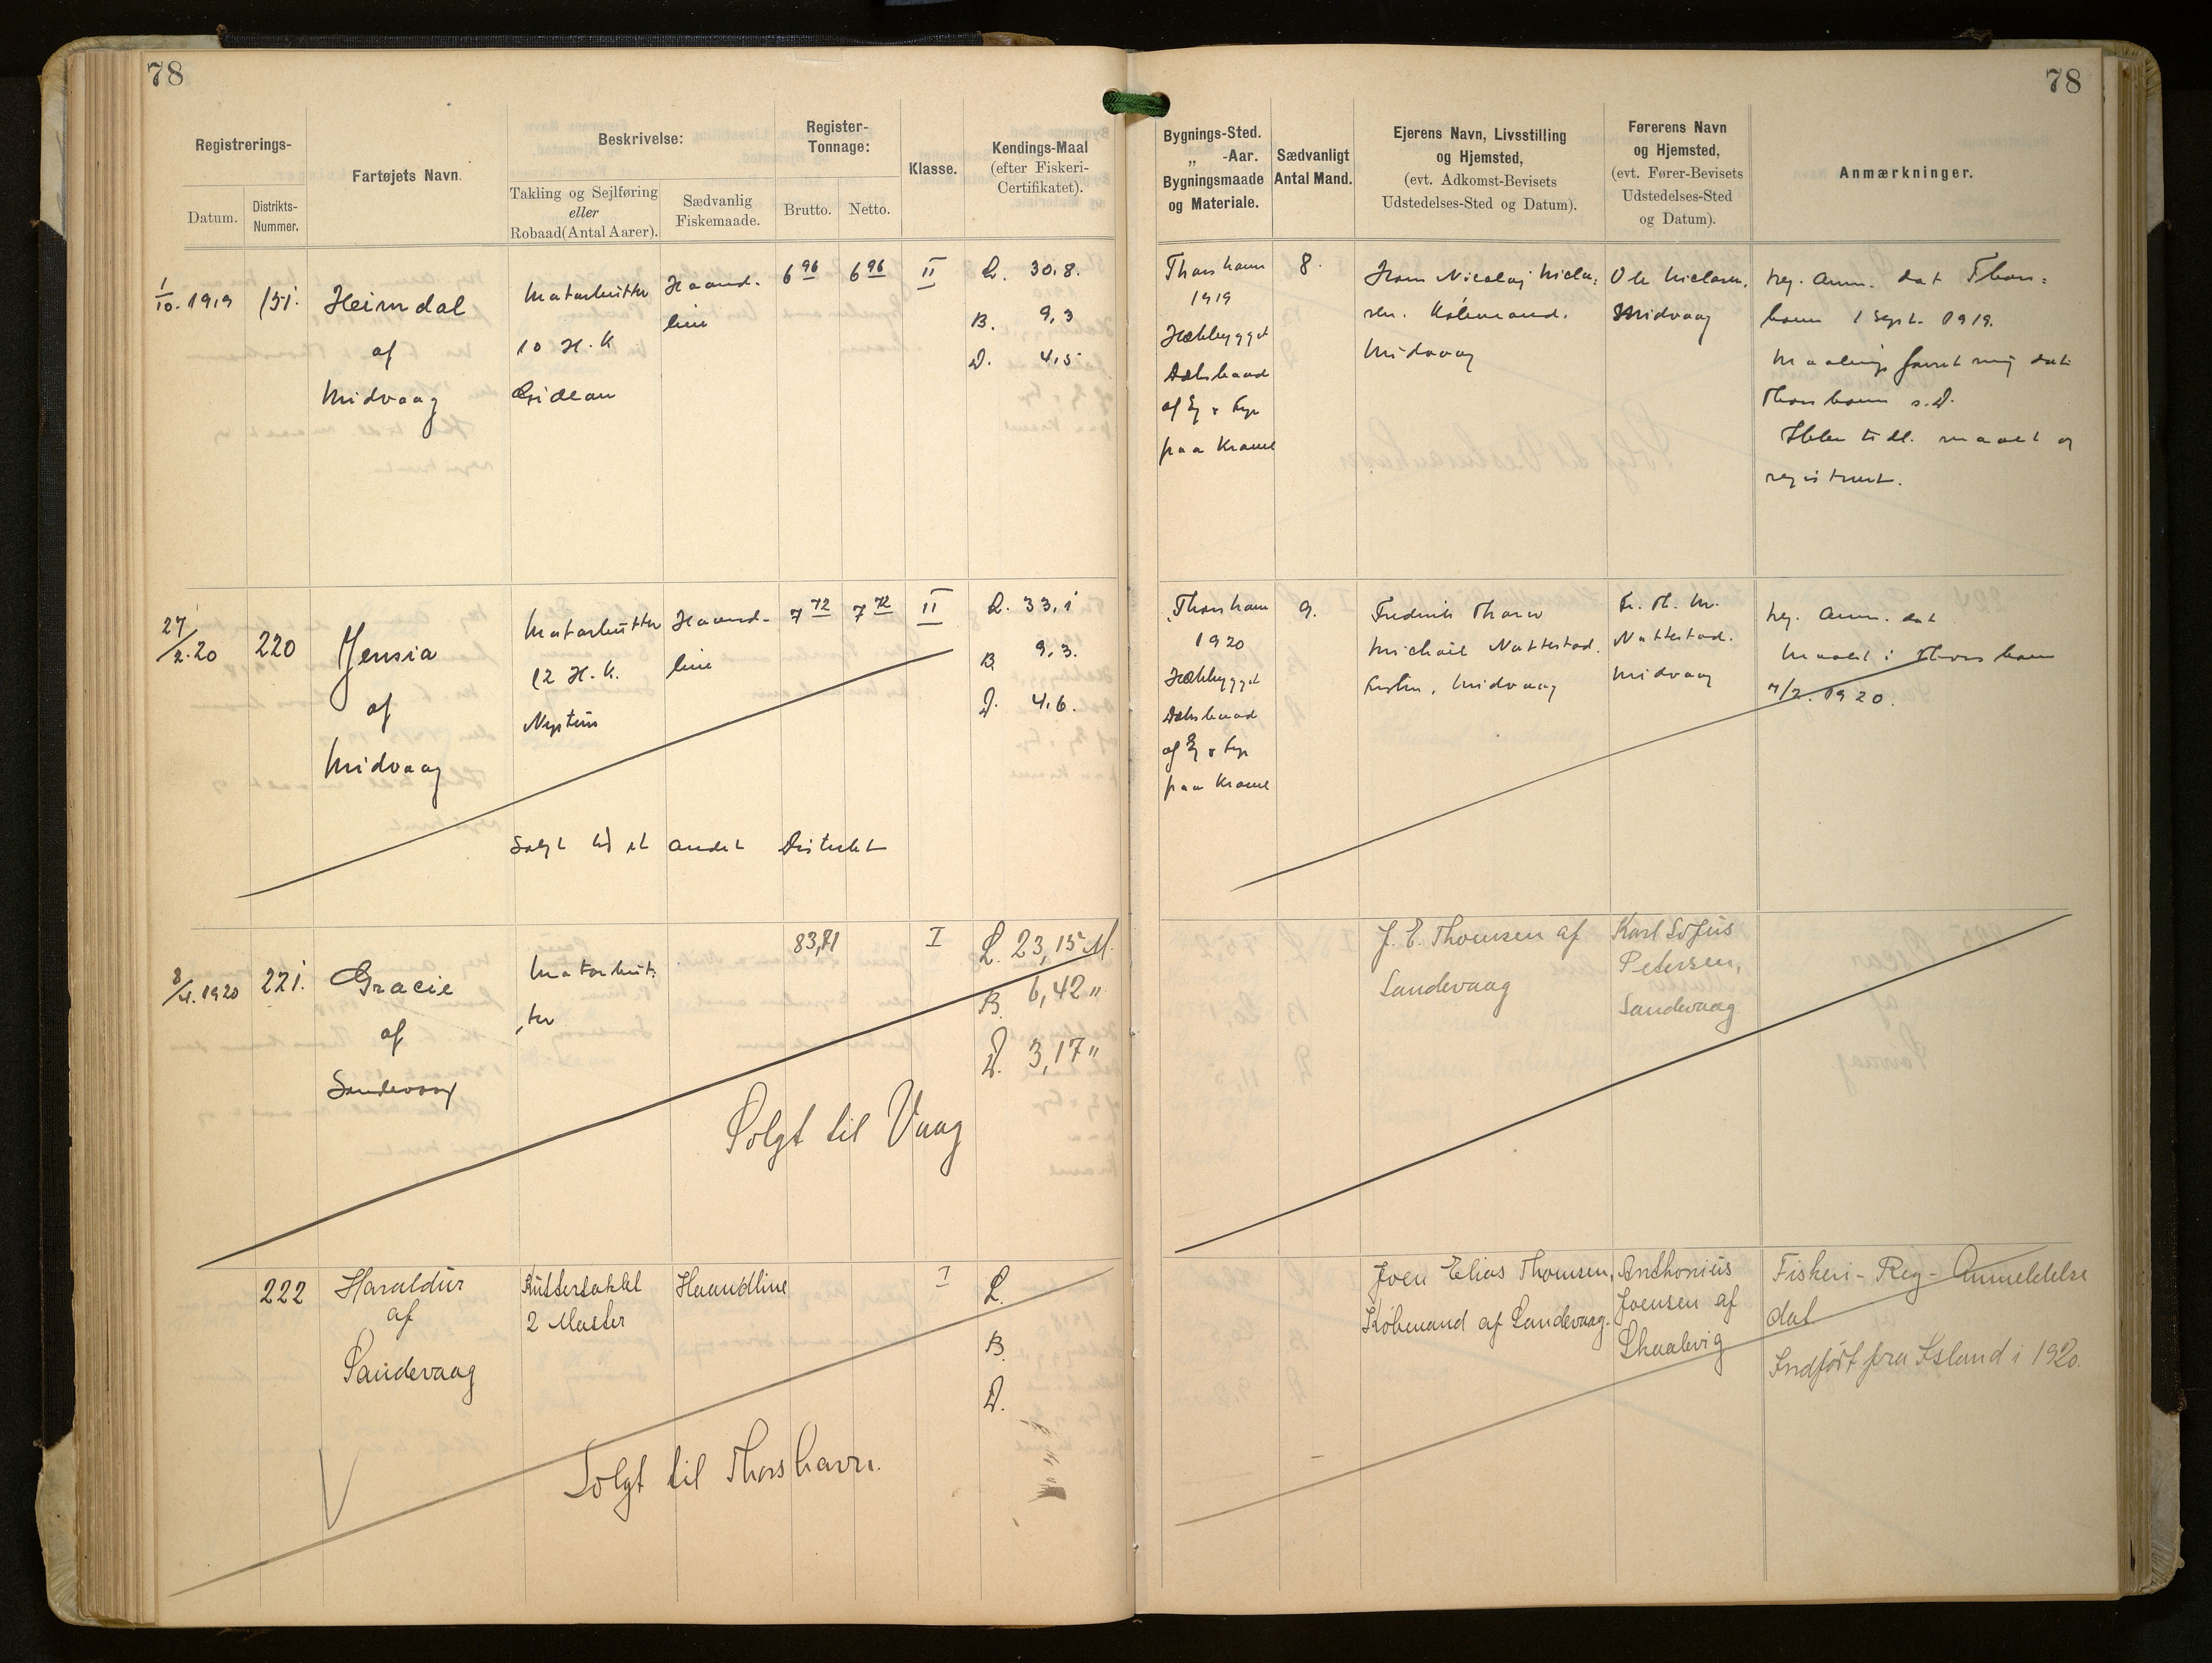 78
78
Registrerings-
Datum.
Distrikts-
Nummer.
Fartøjets Navn.
Beskrivelse:
Takling og Sejlføring
eller
Robaad(Antal Aarer).
Sædvanlig
Fiskemaade.
Register-
Tonnage:
Brutto.
Netto.
Klasse.
Kendings-Maal
(efter Fiskeri-
Certifikatet).
Bygnings-Sted.
„ -Aar.
Bygningsmaade
og Materiale.
Sædvanligt
Antal Mand.
Ejerens Navn, Livsstilling
og Hjemsted,
(evt. Adkomst-Bevisets
Udstedelses-Sted og Datum).
Førerens Navn
og Hjemsted,
(evt. Fører-Bevisets
Udstedelses-Sted
og Datum).
Anmærkninger.
1/10. 1919
151.
Heimdal
af
Midvaag
Motorkutter
10 H.K
Gideon
Haand-
line
6 96
6 96
II
L. 30.8.
B. 9,3
D. 4,5
Thorshavn
1919
Hækbygget
Dæksbaad
af Eg & Fyr
paa Kravel
8.
Hans Nicolaj Niclа-
sen. Købmand.
Midvaag
Ole Niclasen.
Midvaag
Reg. Anm. dat Thors-
havn 1 Sept. 1919.
dat
Thorshavn s.D.
Ikke tidl. maalt og
registreret.
27/2.20
220
Jensia
af
Midvaag
Motorkutter
12 H.K.
Neptun
Haand-
line
7 72
7 72
II
L. 33,1
B 9,3.
D. 4.6.
Solgt til et andet Distrikt
Thorshavn
1920
Hækbygget
Dæksbaad
af Eg & Fyr
paa Kravel
9.
Fredrik Thorv
Michael Nattestad.
Midvaag
Fr. Th. M.
Nattestad.
Midvaag
Reg. Anm. dat
Maalt i Thorshavn
/2. 1920.
8/4.1920
221.
Gracie
af
Sandevaag
Motorkut-
ter
83,71
I
L. 23,15 M.
B. 6,42 "
D. 3,17 "
Solgt til Vaag
J. E. Thomsen af
Sandevaag
Karl Sofus
Petersen,
Sandevaag
222
Haraldur
af
Sandevaag
Kuttertaklet
2 Master
Haandline
I
L.
B.
D.
Solgt til Thorshavn.
Joen Elias Thomsen,
Købmand af Sandevaag.
Anthonius
Joensen af
Skaalevig
Fiskeri-Reg-Anmeldelse
dat
Indført fra Island i 1920.